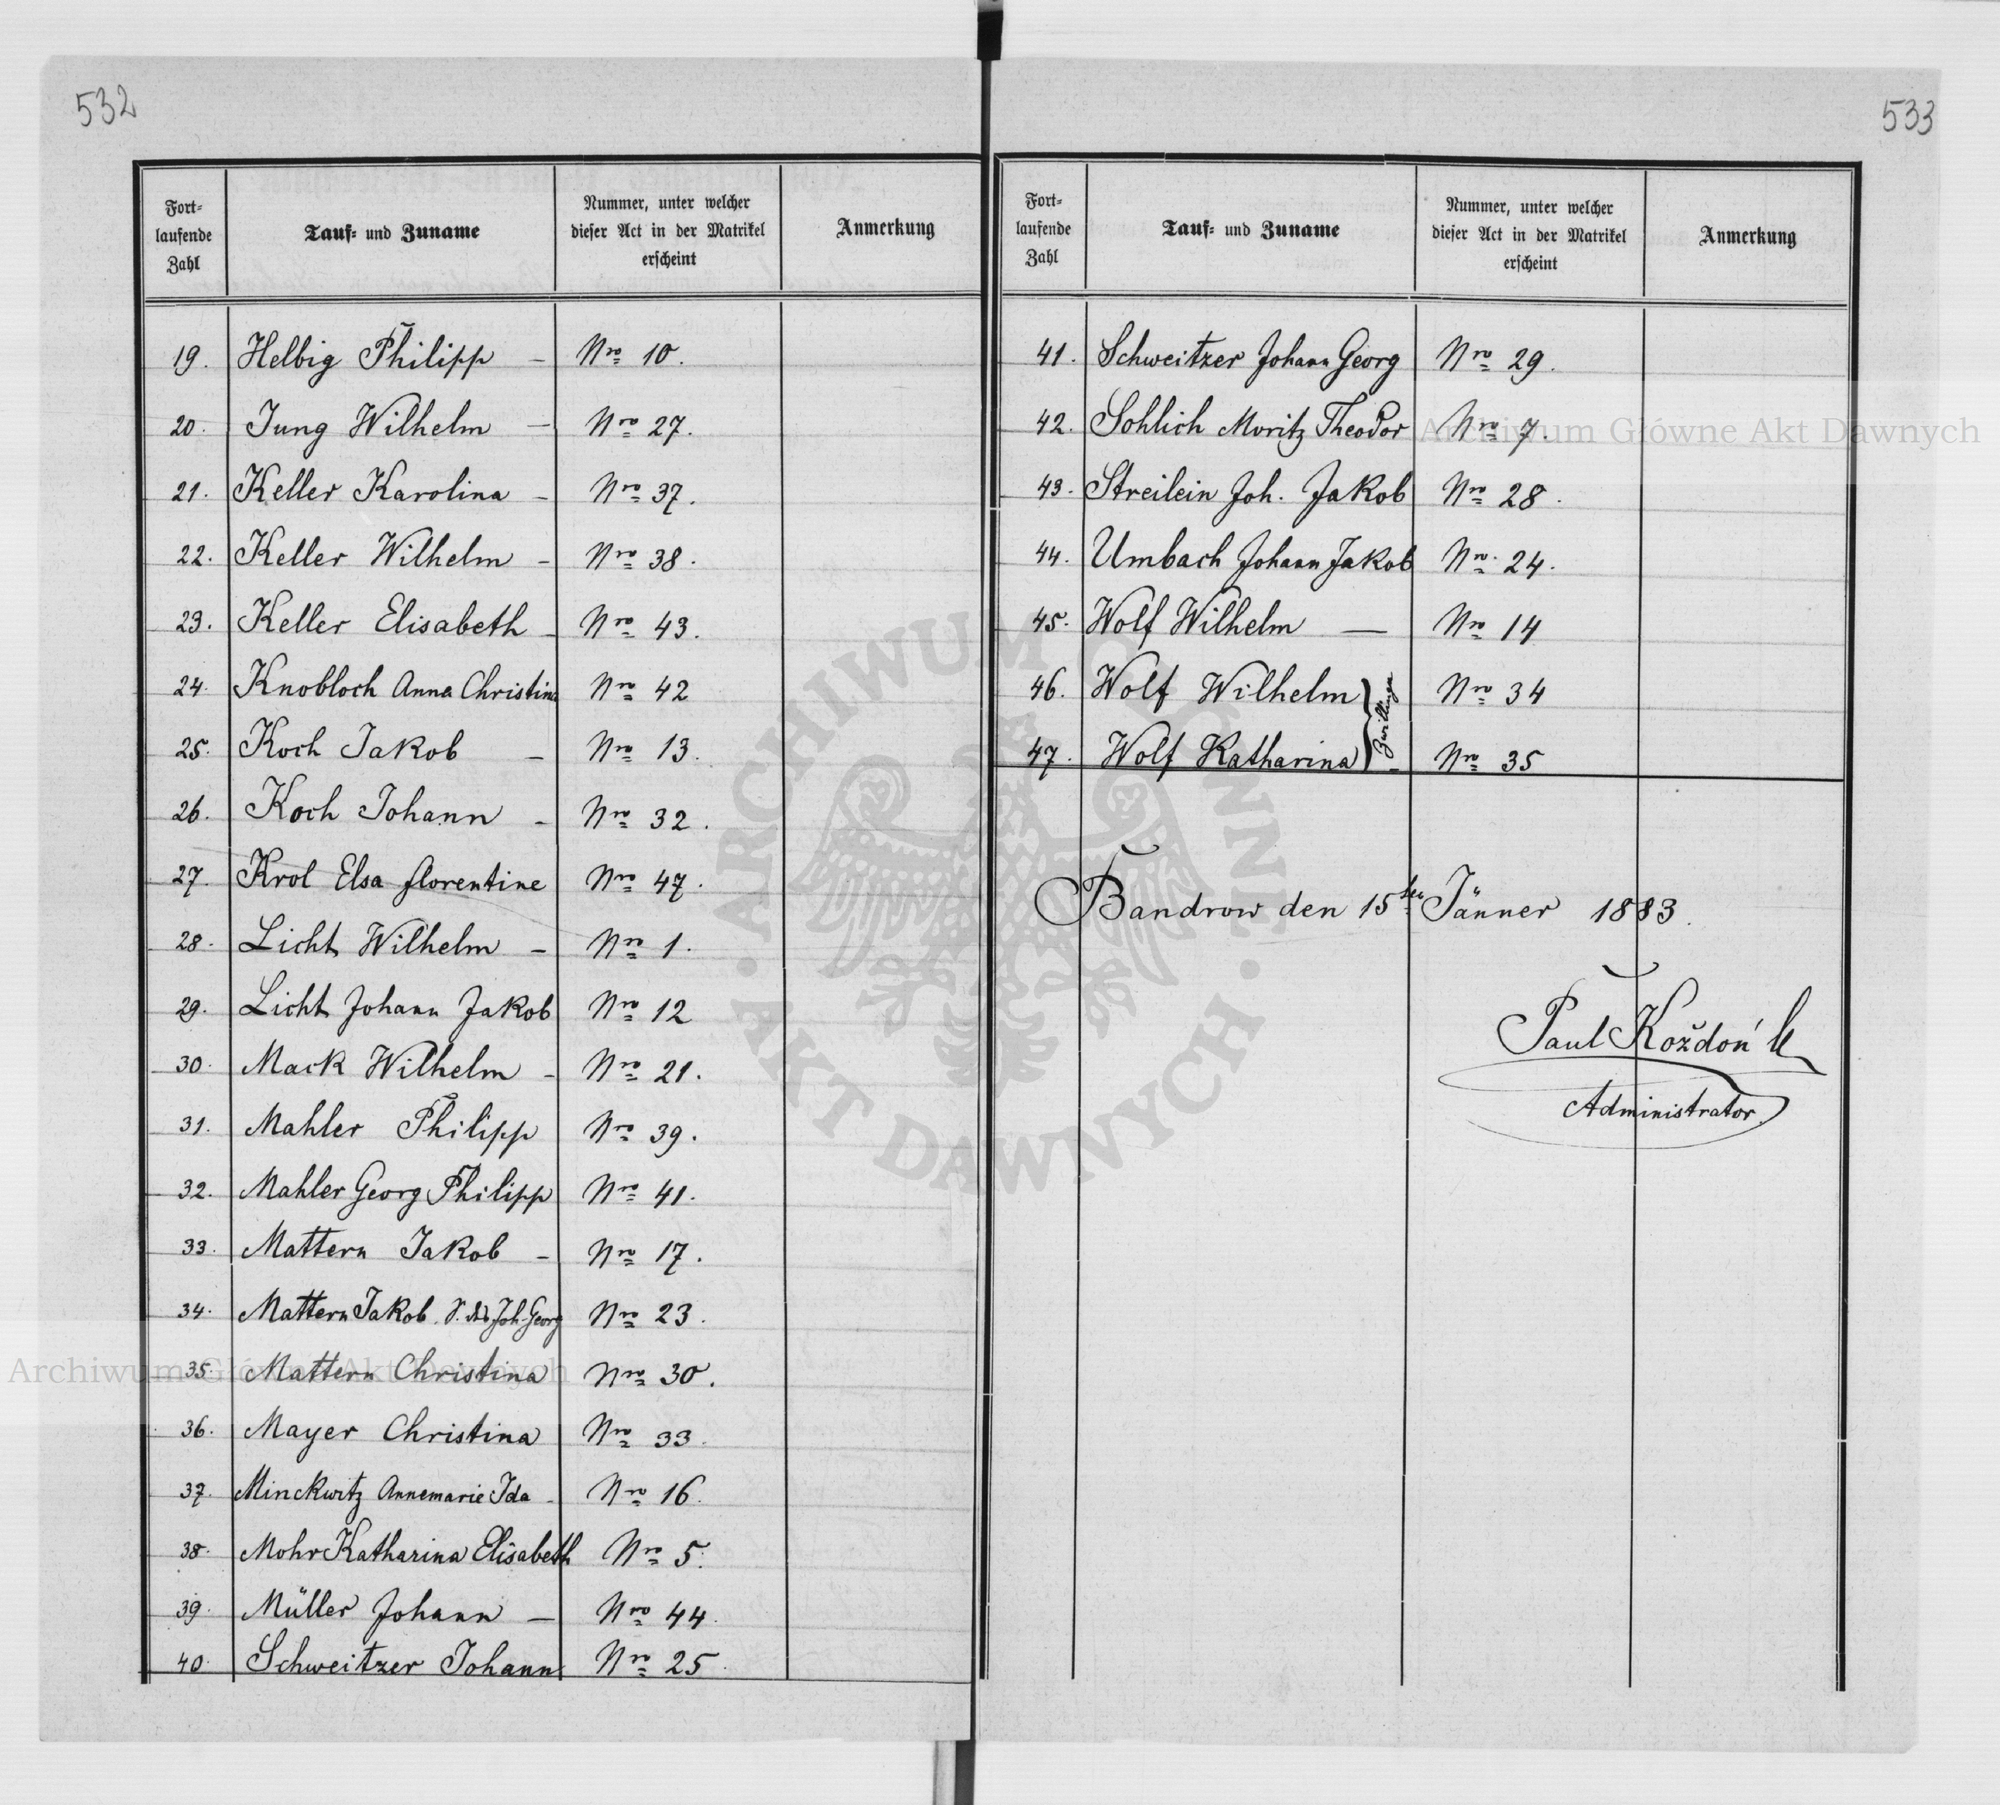 532
Fort-
laufende
Zahl
Tauf- und Zuname
Nummer, unter welcher
dieser Act in der Matrikel
erscheint
Anmerkung
19. Helbig Philipp – Nro 10.
20. Jung Wilhelm – Nro 27.
21. Keller Karolina – Nro 37.
22. Keller Wilhelm – Nro 38.
23. Keller Elisabeth – Nro 43.
24. Knobloch Anna Christina Nro 42
25. Koch Jakob – Nro 13.
26. Koch Johann – Nro 32.
27. Krol Elsa florentine Nro 47.
28. Licht Wilhelm – Nro 1.
29. Licht Johann Jakob Nro 12
30. Mack Wilhelm – Nro 21.
31. Mahler Philipp Nro 39.
32. Mahler Georg Philipp Nro 41.
33. Mattern Jakob – Nro 17.
34. Mattern Jakob Joh. Georg Nro 23.
35. Mattern Christina Nro 30.
36. Mayer Christina Nro 33.
37. Minckwitz Annemarie Ida – Nro 16.
38. Mohr Katharina Elisabeth Nro 5.
39. Müller Johann – Nro 44.
40. Schweitzer Johann Nro 25.
533
Fort-
laufende
Zahl
Tauf- und Zuname
Nummer, unter welcher
dieser Act in der Matrikel
erscheint
Anmerkung
41. Schweitzer Johann Georg Nro 29.
42. Sohlich Moritz Theodor Nro 7.
43. Streilein Joh. Jakob Nro 28.
44. Umbach Johann Jakob Nro 24.
45. Wolf Wilhelm – Nro 14
46. Wolf Wilhelm Nro 34
Zwillinge
47. Wolf Katharina – Nro 35
Bandrow den 15ten Jänner 1883.
Paul Koždoń
Administrator.
Archiwum Główne Akt Dawnych
Archiwum Główne Akt Dawnych
ARCHIWUM GŁÓWNE
· AKT DAWNYCH ·